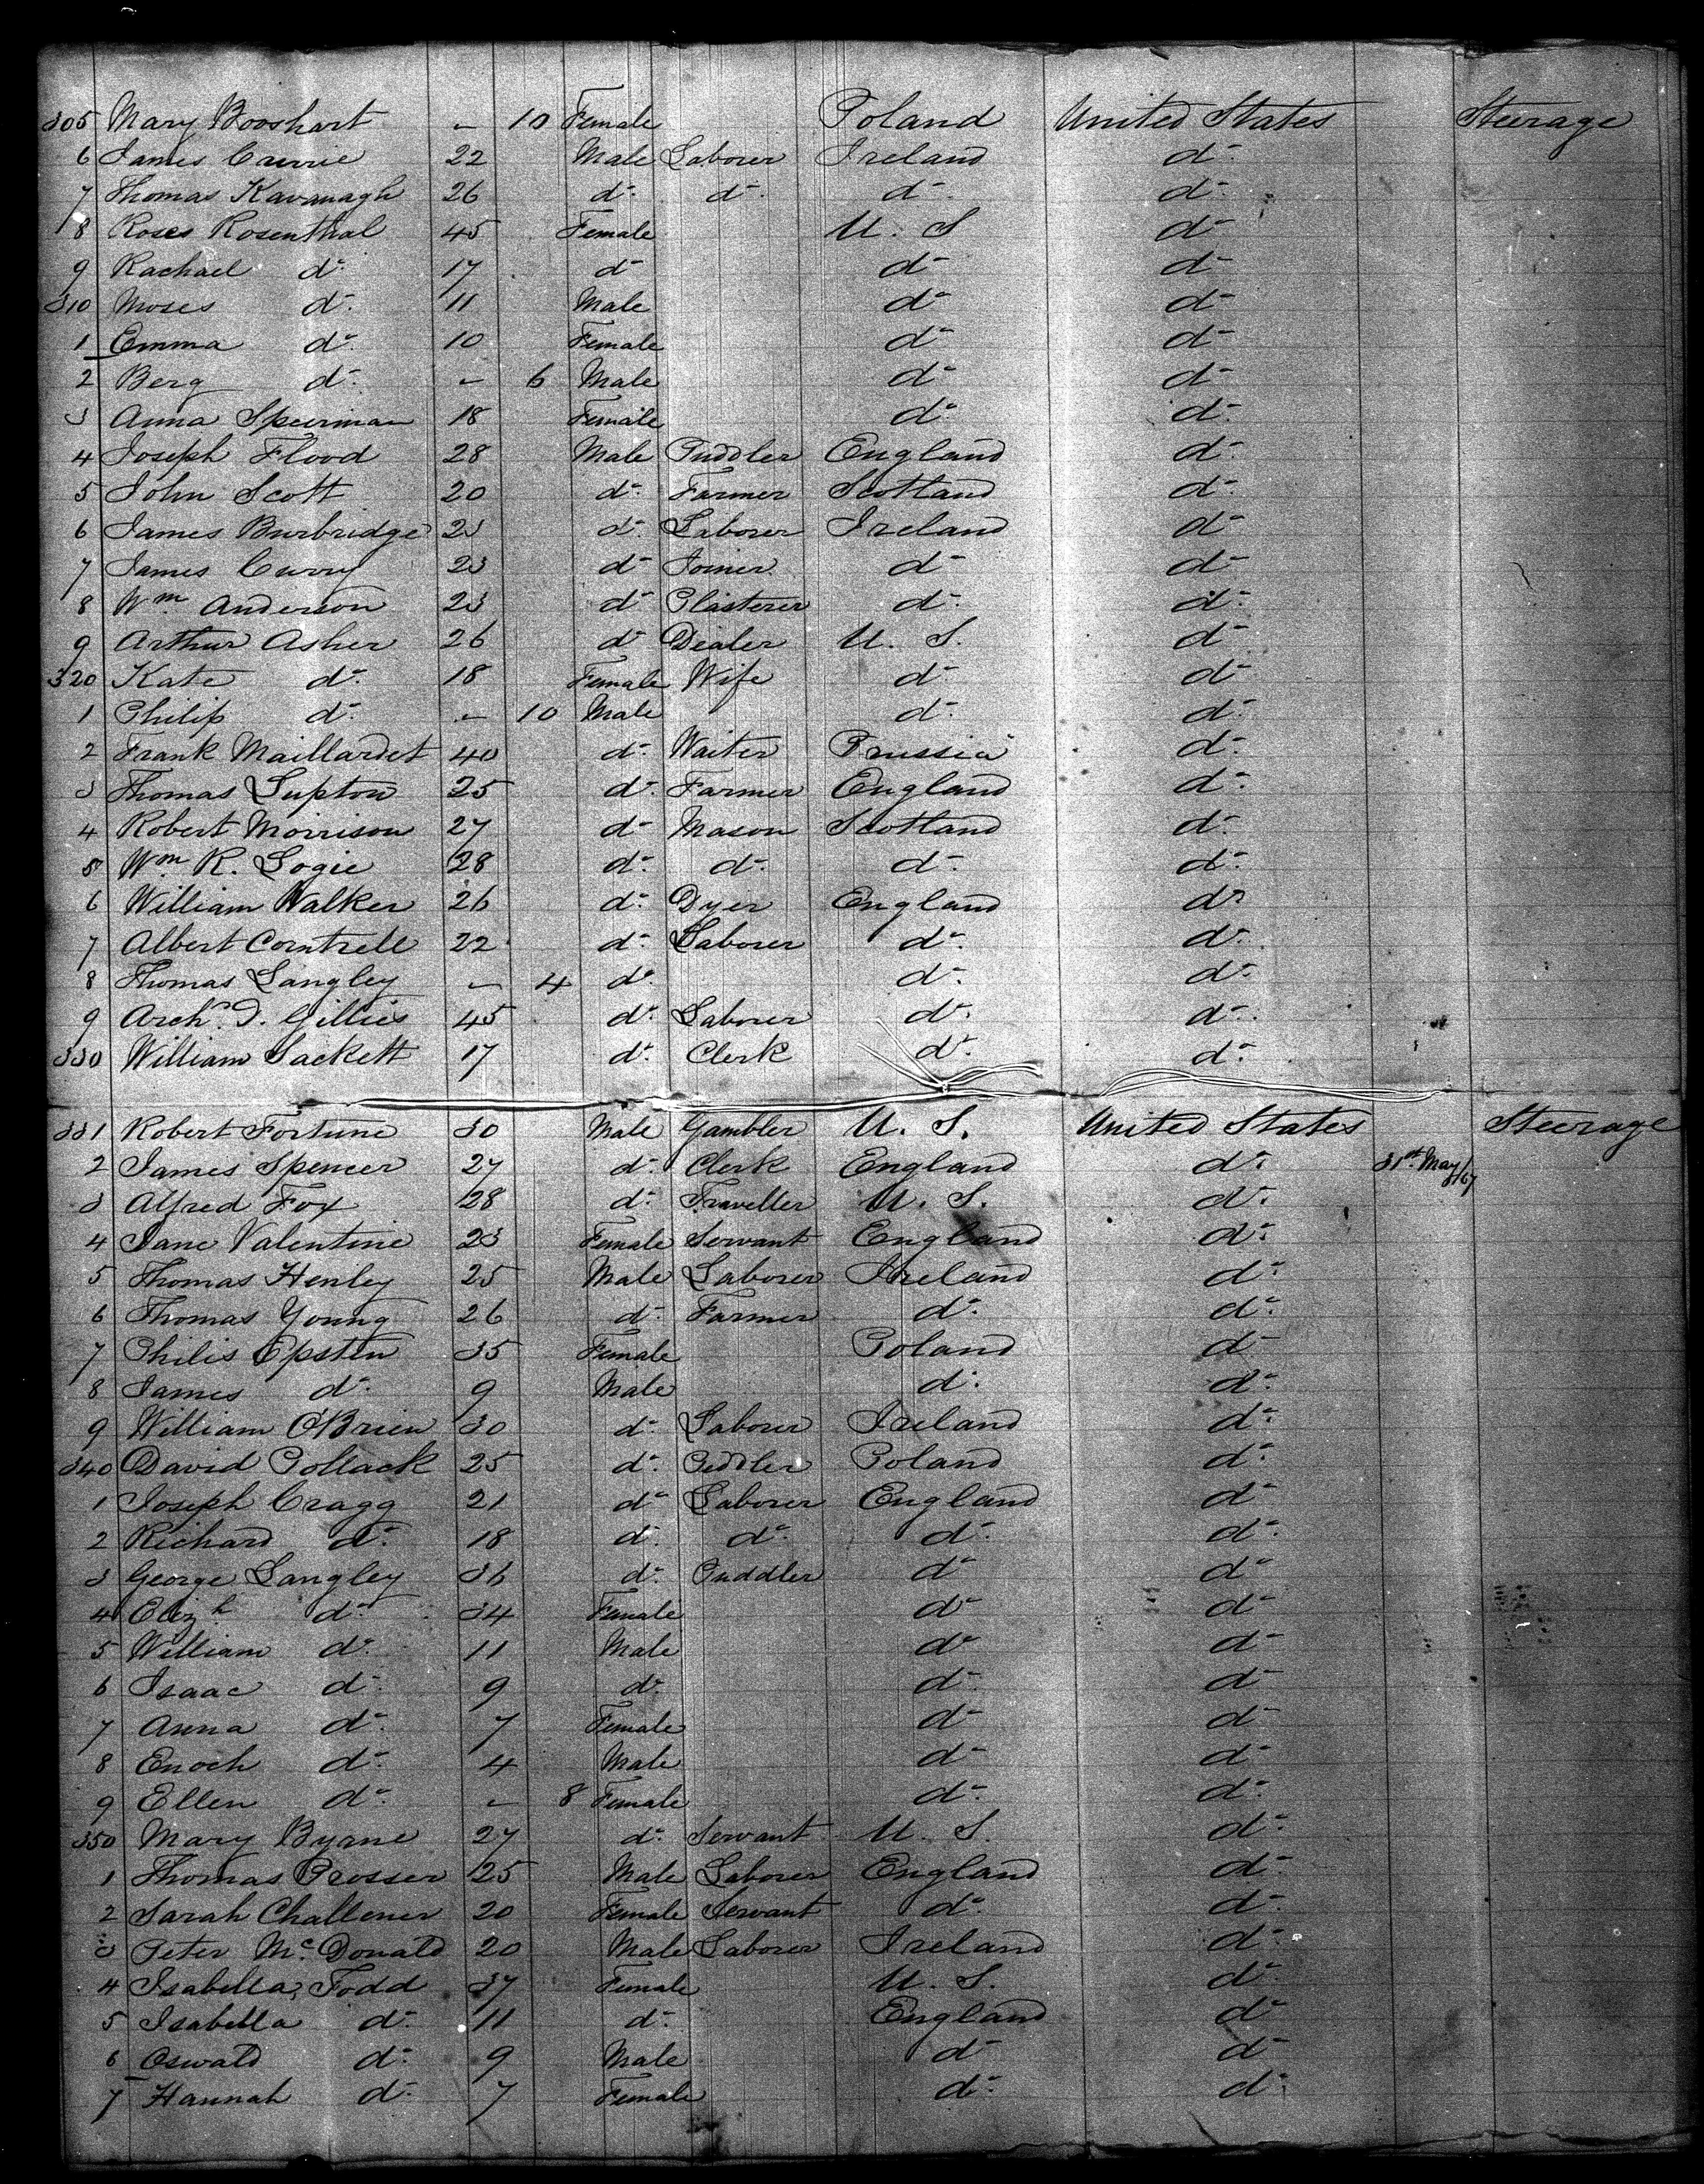 305 Mary Booshart - 10 Female Poland United States Steerage
6 James Currie 22 Male Laborer Ireland do
7 Thomas Kavanagh 26 do do do do
8 Roses Rosenthal 45 Female U. S do
9 Rachael do 17 do do do
310 Moses do 11 Male do do
1 Emma do 10 Female do do
2 Berg do - 6 Male do do
3 Anna Speerman 18 Female do do
4 Joseph Flood 28 Male Puddler England do
5 John Scott 20 do Farmer Scotland do
6 James Burbridge 23 do Laborer Ireland do
7 James Curry 23 do Joiner do do
8 Wm Anderson 23 do Plasterer do do
9 Arthur Asher 26 do Dealer U. S. do
320 Kate do 18 Female Wife do do
1 Philip do - 10 Male do do
2 Frank Maillardet 40 do Waiter Prussia do
3 Thomas Lupton 25 do Farmer England do
4 Robert Morrison 27 do Mason Scotland do
5 Wm R. Logie 28 do do do do
6 William Walker 26 do Dyer England do
7 Albert Corntrell 22 do Laborer do do
8 Thomas Langley - 4 do do do
9 Archd. Gillies 45 do Laborer do do
330 William Sackett 17 do Clerk do do
331 Robert Fortune 30 Male Gambler U. S. United States Steerage
2 James Spencer 27 do Clerk England do 31st May/67
3 Alfred Fox 28 do Traveller U. S. do
4 Jane Valentine 23 Female Servant England do
5 Thomas Henley 25 Male Laborer Ireland do
6 Thomas Young 26 do Farmer do do
7 Philis Epsten 35 Female Poland do
8 James do 9 Male do do
9 William O'Brien 30 do Laborer Ireland do
340 David Pollack 25 do Peddler Poland do
1 Joseph Cragg 21 do Laborer England do
2 Richard do 18 do do do do
3 George Langley 36 do Puddler do do
4 Elizh do 34 Female do do
5 William do 11 Male do do
6 Isaac do 9 do do do
7 Anna do 7 Female do do
8 Enoch do 4 Male do do
9 Ellen do - 8 Female do do
350 Mary Byane 27 do Servant U. S. do
1 Thomas Prosser 25 Male Laborer England do
2 Sarah Challener 20 Female Servant do do
3 Peter McDonald 20 Male Laborer Ireland do
4 Isabella Todd 37 Female U. S. do
5 Isabella do 11 do England do
6 Oswald do 9 Male do do
7 Hannah do 7 Female do do